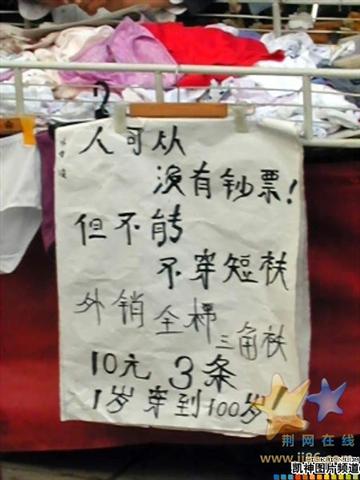 人可从
没有钞票！
但不能
不穿短衭
外销全棉
三角衭
10元 3条
1岁穿到100岁！
荆网在线
凯神图片频道